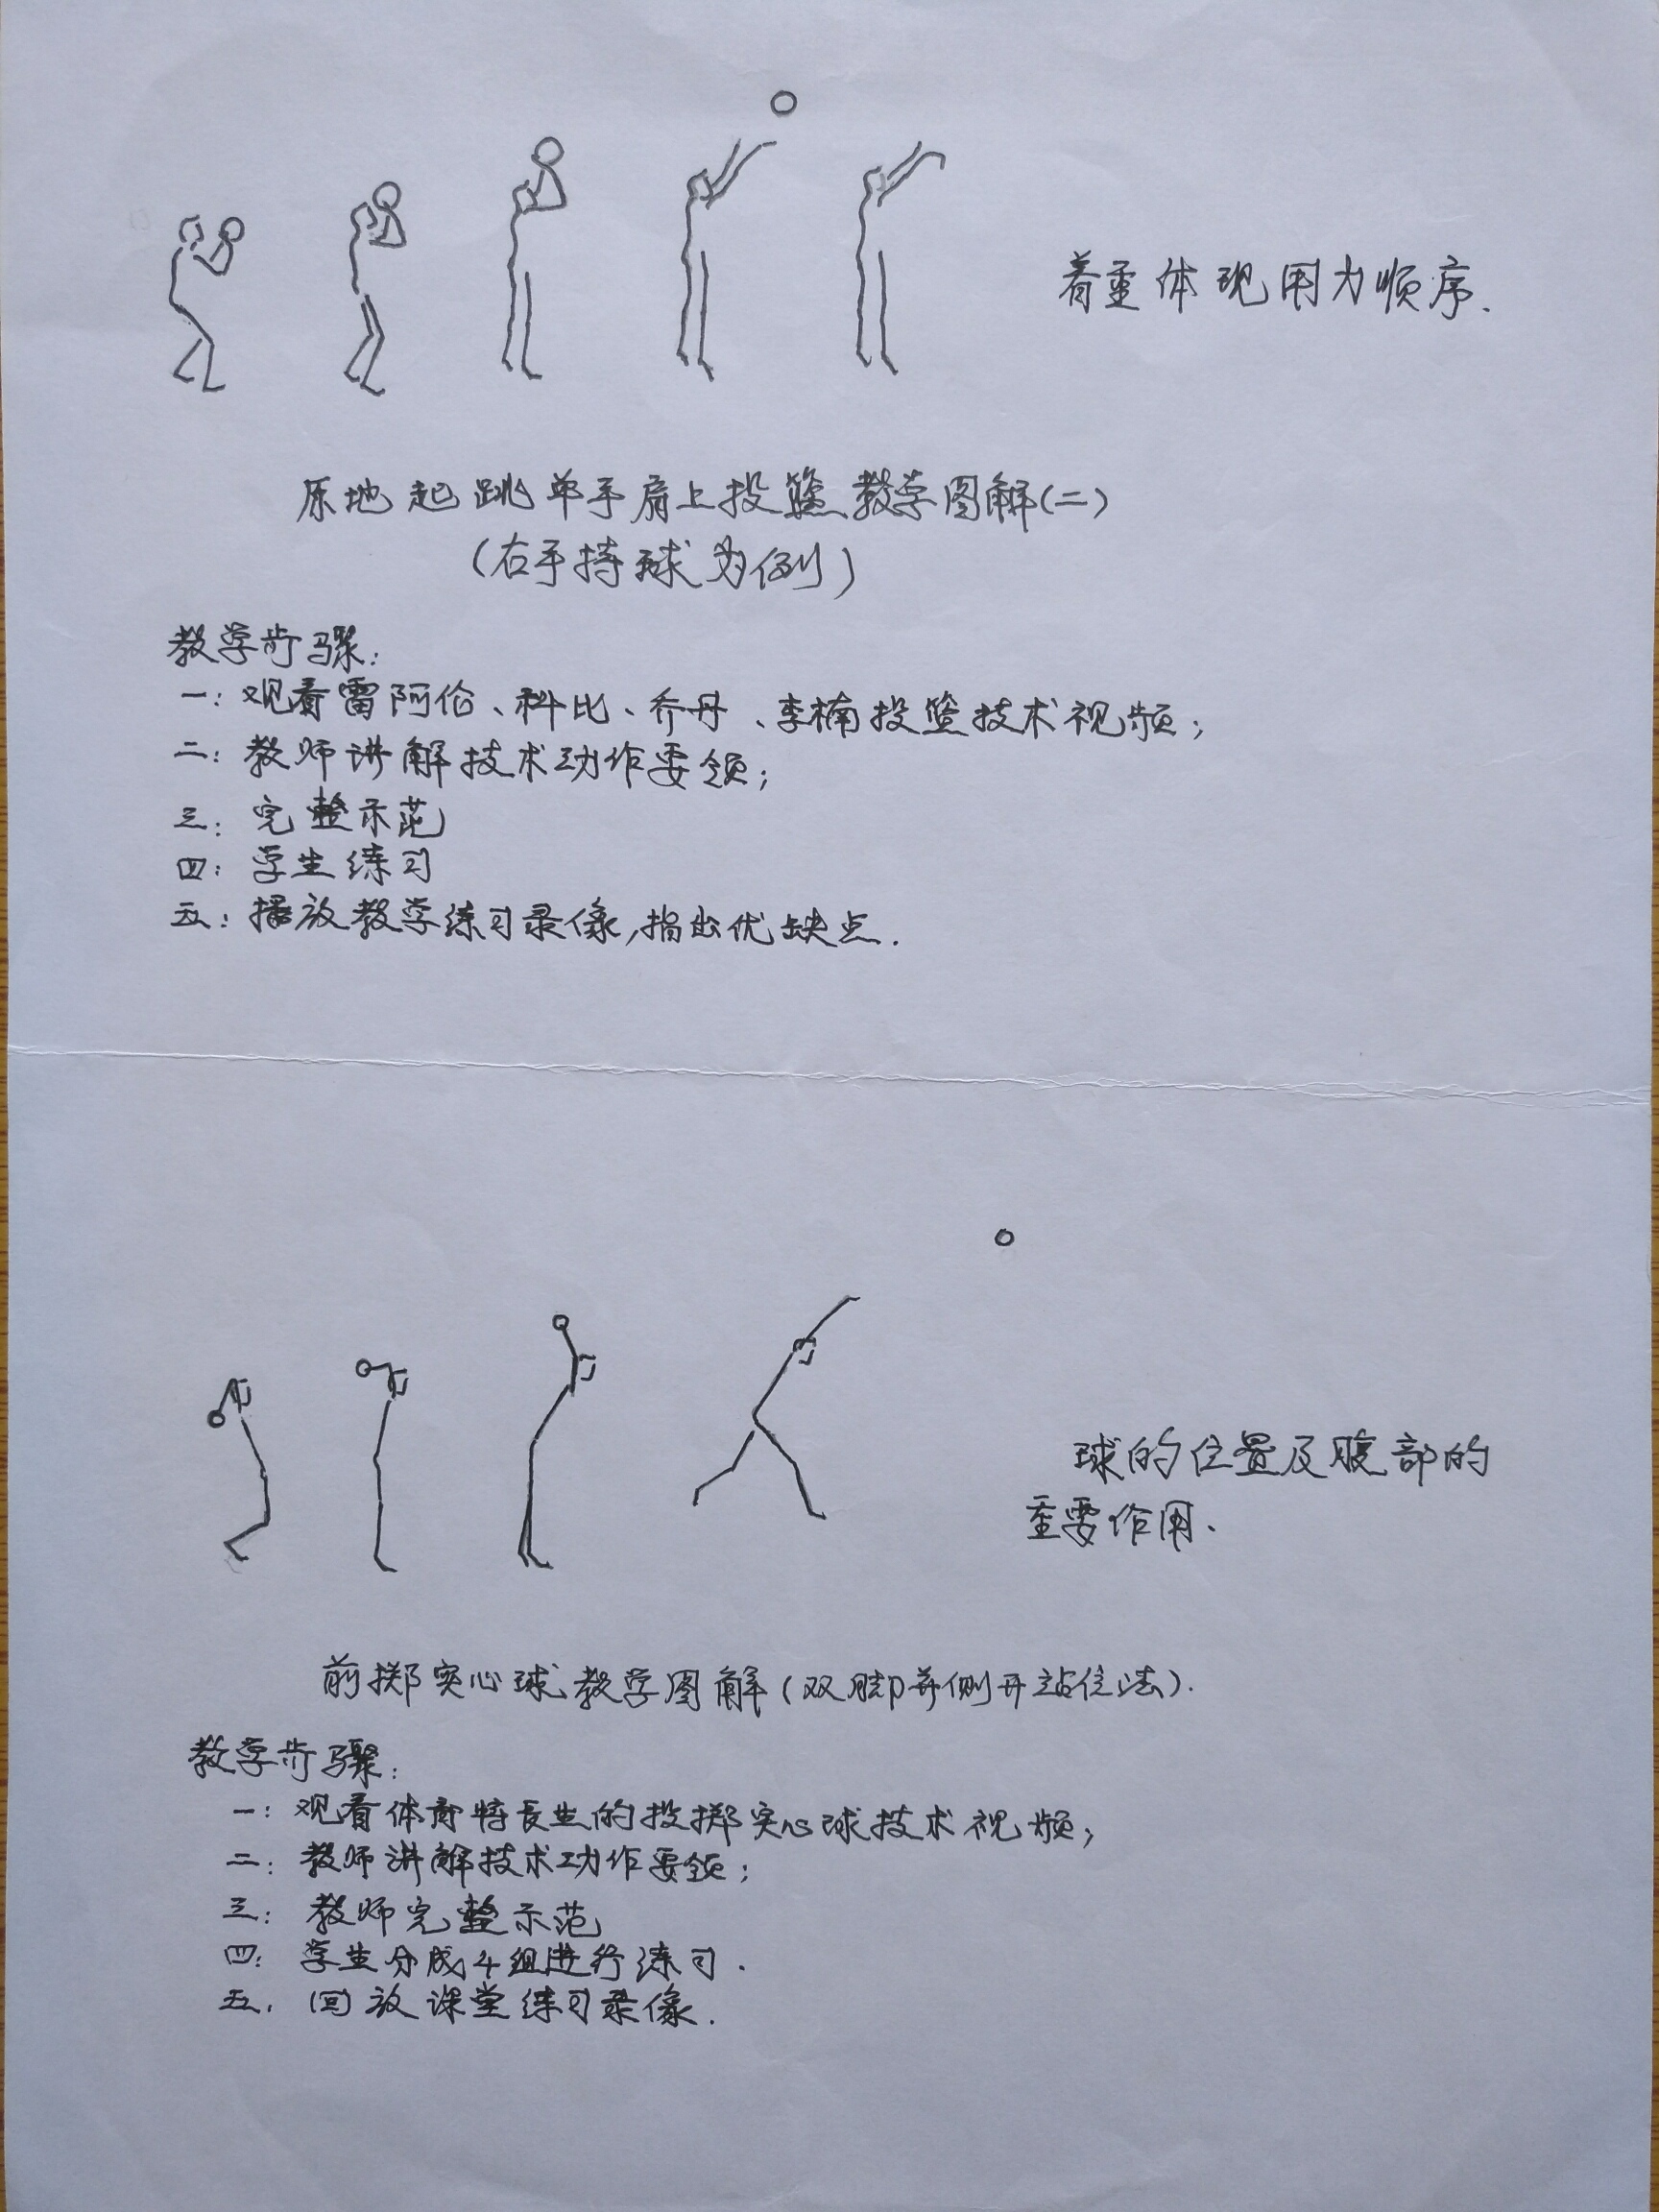 着重体现用力顺序.
原地起跳单手肩上投篮教学图解(二)
(右手持球为例)
教学步骤:
一:观看雷阿伦、科比、乔丹、李楠投篮技术视频;
二:教师讲解技术动作要领;
三:完整示范
四:学生练习
五:播放教学练习录像,指出优缺点.
球的位置及腹部的
重要作用.
前掷实心球教学图解(双脚并侧开站位法).
教学步骤:
一:观看体育特长生的投掷实心球技术视频;
二:教师讲解技术动作要领;
三:教师完整示范
四:学生分成4组进行练习.
五.回放课堂练习录像.